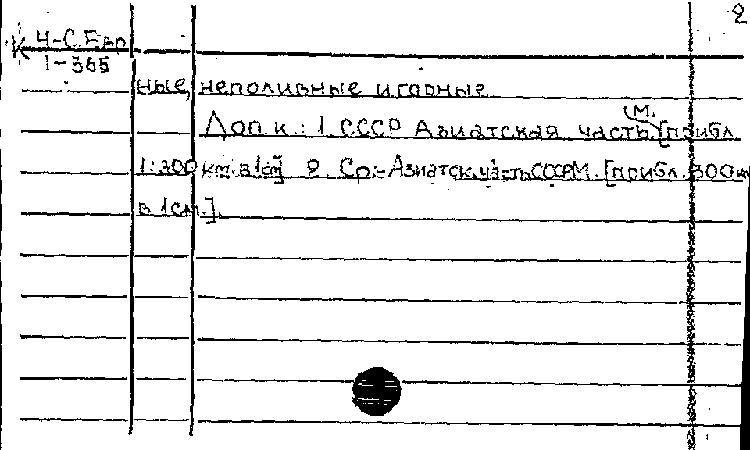 2
К Ч-С.Евр
1-365
ные, неполивные и горные
Доп. к.: 1. СССР Азиатская часть. М. [прибл.
1:300 км. в 1см] 2. Ср.-Азиатск. часть СССР М. [прибл. 300 км
в 1 см.].